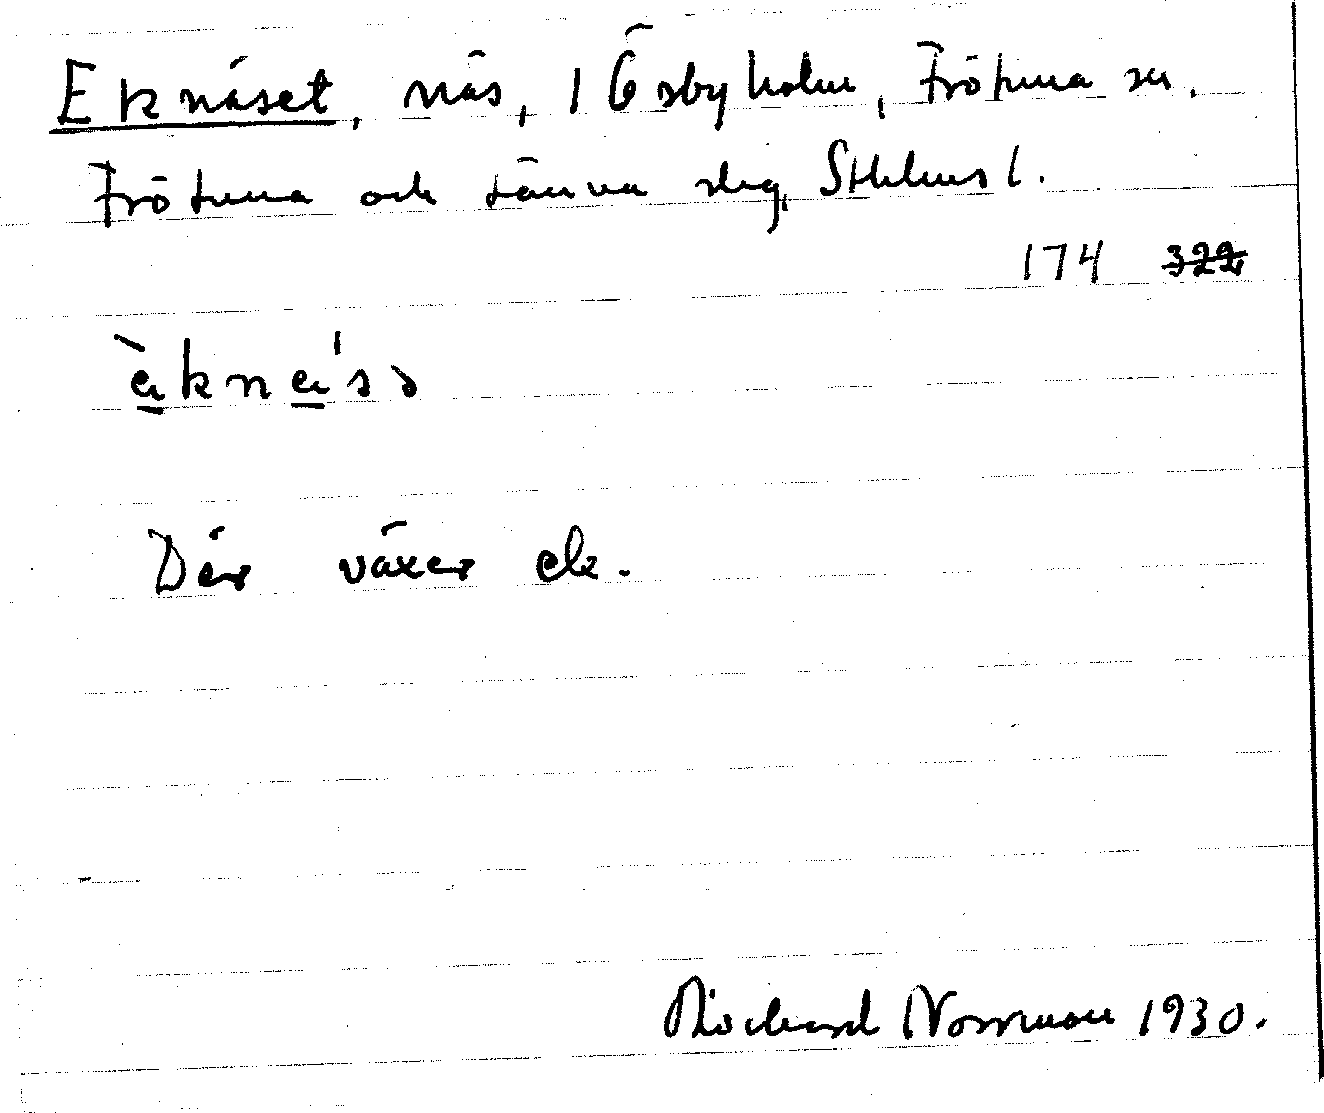 Eknäset, näs, 1 Ösbyholm, Frötuna sn.
Frötuna och Länna slg, Sthlms l.
174 322
Där växer ek.
Richard Norrman 1930.